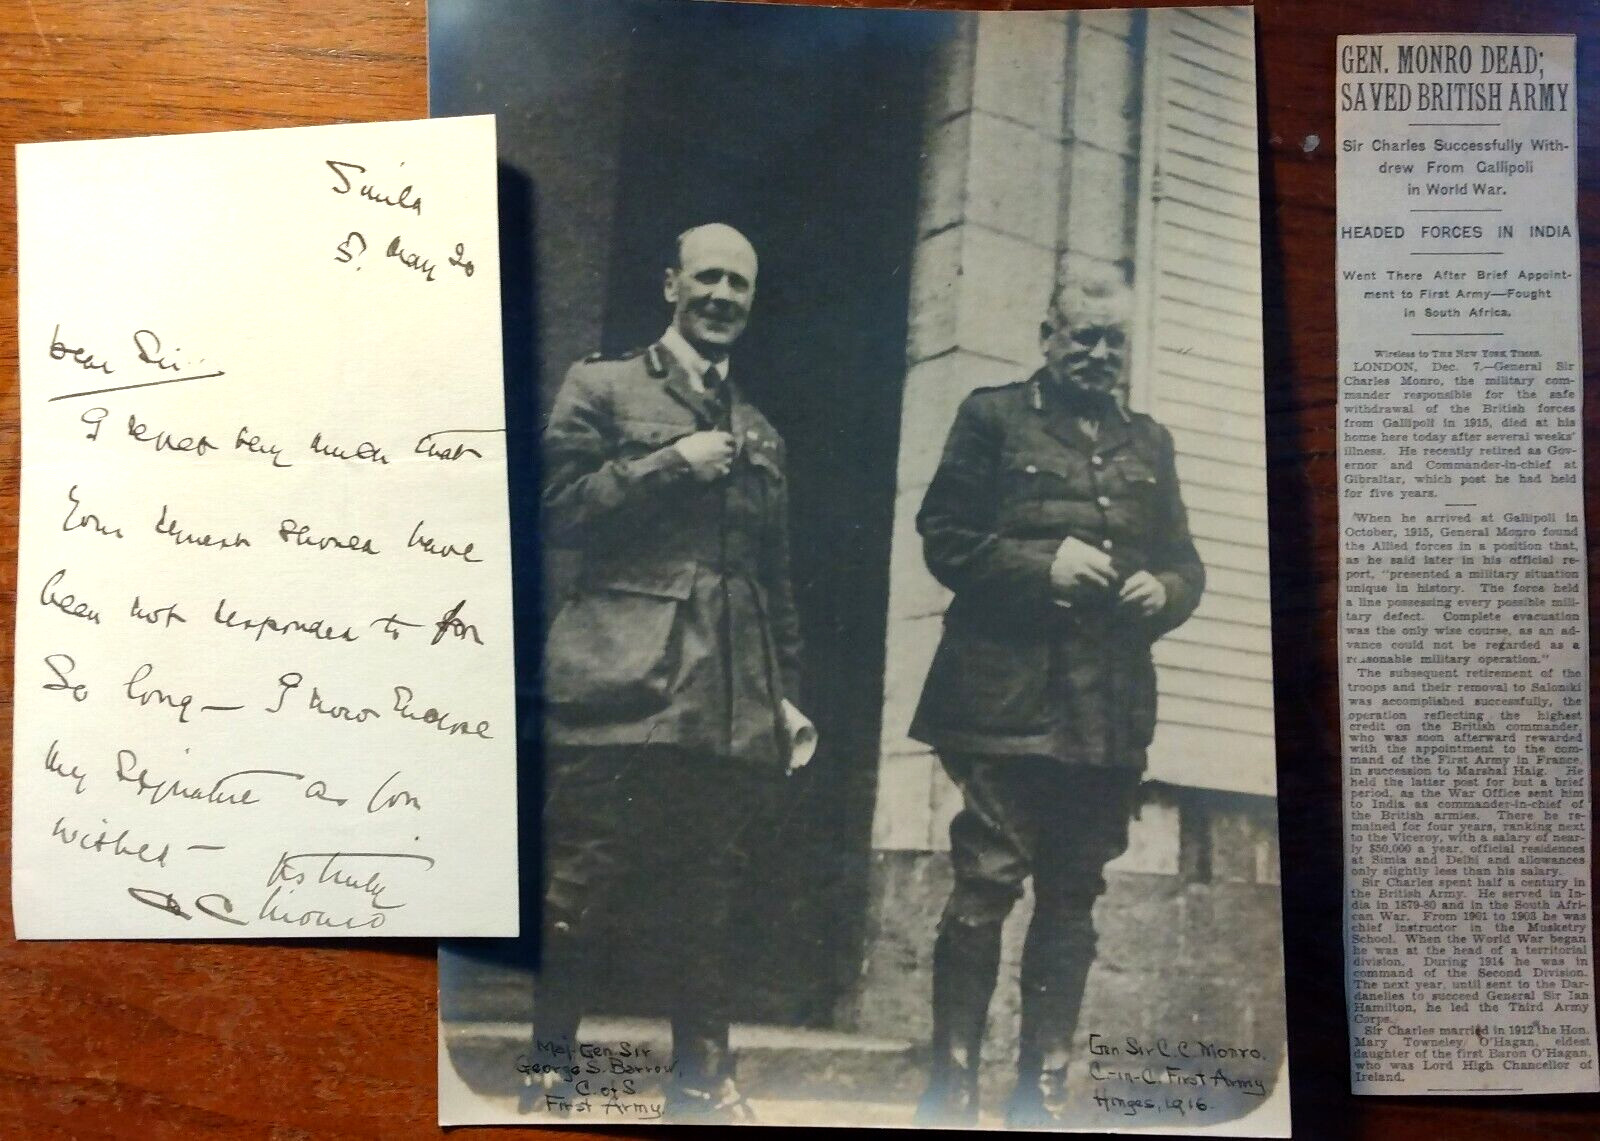 Simla
5. May 20
Dear Sir.
I regret very much that
your request should have
been not responded to for
so long — I now enclose
my signature as you
wished —
Yrs truly
C C Monro
Maj. Gen Sir
George S. Barrow,
C. of S
First Army.
Gen Sir C. C. Monro.
C.-in-C. First Army
Hinges, 1916.
GEN. MONRO DEAD;
SAVED BRITISH ARMY
Sir Charles Successfully With-
drew From Gallipoli
in World War.
HEADED FORCES IN INDIA
Went There After Brief Appoint-
ment to First Army—Fought
in South Africa.
Wireless to THE NEW YORK TIMES.
LONDON, Dec. 7.—General Sir
Charles Monro, the military com-
mander responsible for the safe
withdrawal of the British forces
from Gallipoli in 1915, died at his
home here today after several weeks'
illness. He recently retired as Gov-
ernor and Commander-in-chief at
Gibraltar, which post he had held
for five years.
When he arrived at Gallipoli in
October, 1915, General Monro found
the Allied forces in a position that,
as he said later in his official re-
port, "presented a military situation
unique in history. The force held
a line possessing every possible mili-
tary defect. Complete evacuation
was the only wise course, as an ad-
vance could not be regarded as a
reasonable military operation."
The subsequent retirement of the
troops and their removal to Saloniki
was accomplished successfully, the
operation reflecting the highest
credit on the British commander,
who was soon afterward rewarded
with the appointment to the com-
mand of the First Army in France,
in succession to Marshal Haig. He
held the latter post for but a brief
period, as the War Office sent him
to India as commander-in-chief of
the British armies. There he re-
mained for four years, ranking next
to the Viceroy, with a salary of near-
ly $50,000 a year, official residences
at Simla and Delhi and allowances
only slightly less than his salary.
Sir Charles spent half a century in
the British Army. He served in In-
dia in 1879-80 and in the South Afri-
can War. From 1901 to 1903 he was
chief instructor in the Musketry
School. When the World War began
he was at the head of a territorial
division. During 1914 he was in
command of the Second Division.
The next year, until sent to the Dar-
danelles to succeed General Sir Ian
Hamilton, he led the Third Army
Corps.
Sir Charles married in 1912 the Hon.
Mary Towneley O'Hagan, eldest
daughter of the first Baron O'Hagan,
who was Lord High Chancellor of
Ireland.